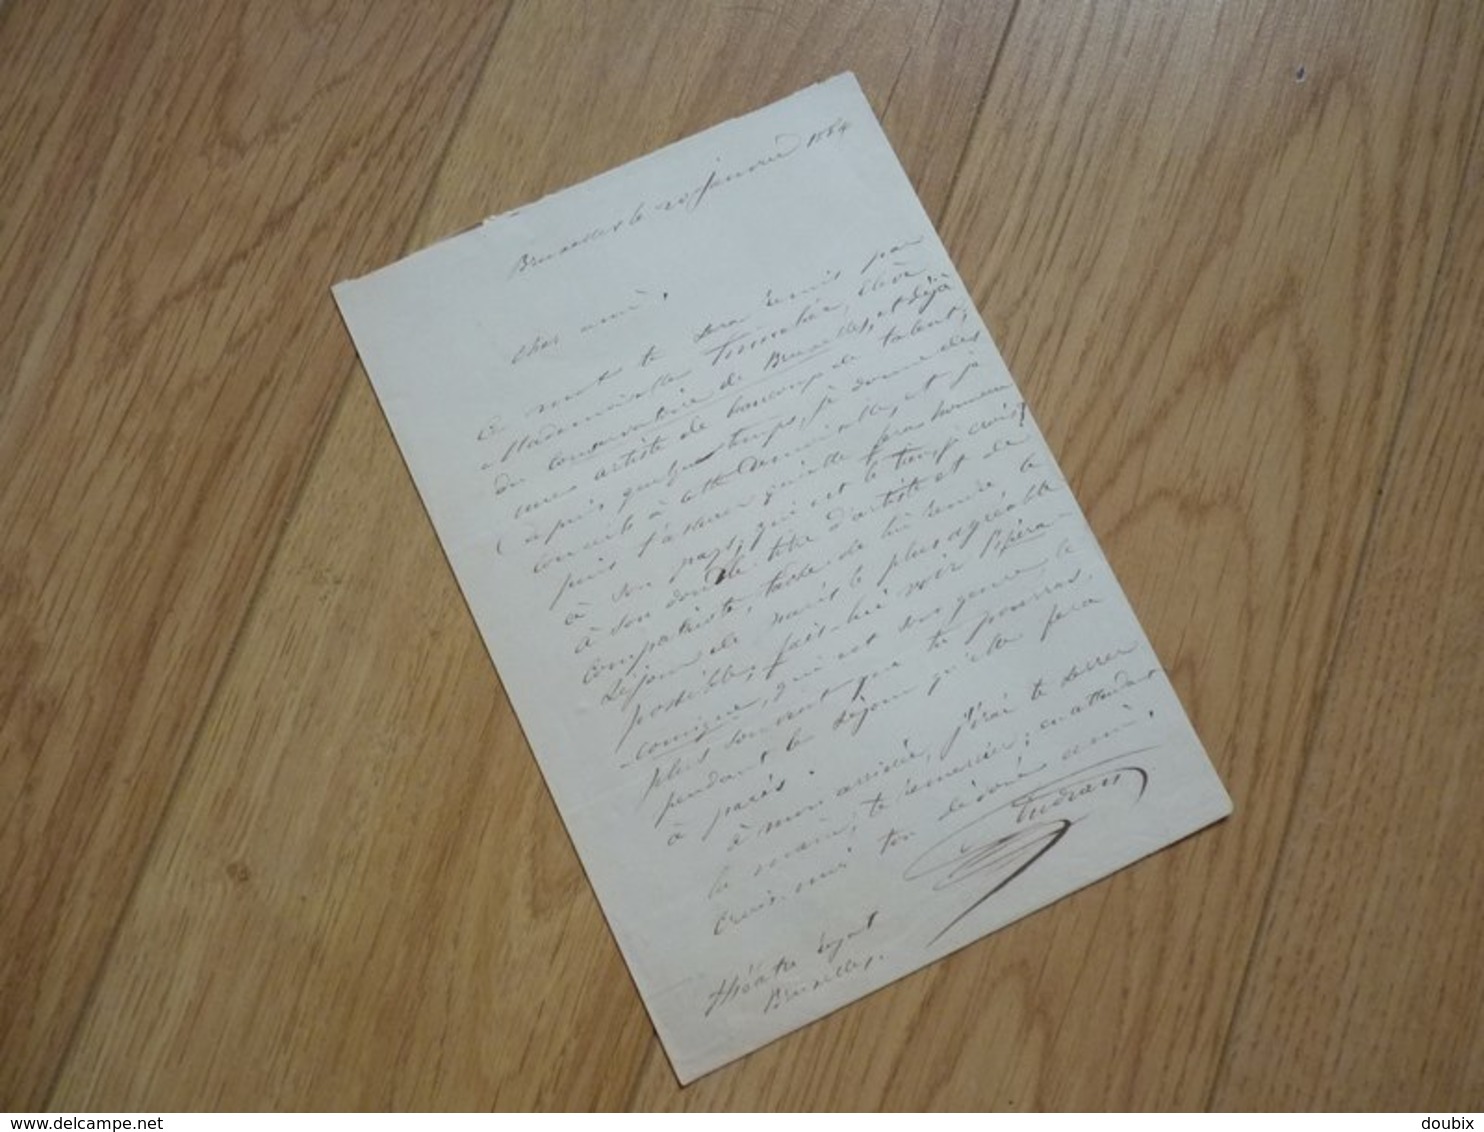 Bruxelles le 20 janvier 1854
cher ami,
ce mot te sera remis par
Mademoiselle élève
du conservatoire de Bruxelles, et déjà
une artiste de baucoup de talent;
(depuis quelque temps, je donne des
conseils à cette demoiselle, et je
puis t'assurer qu'elle fera honneur
à son pays; qui est le tien je crois)
à son double titre d'artiste et de
compatriote, tache de lui rendre le
séjour de paris le plus agréable
possible, fais-lui voir l'opéra-
-comique, qui est son genre, le
plus souvent que tu pourras,
pendant le séjour qu'elle fera
à paris.
à mon arrivée, j'irai te serrer
la main, te remercier; en attendant
crois-moi ton dévoué ami,
Audran
théâtre
Bruxelles.
delcampe.net
doubix